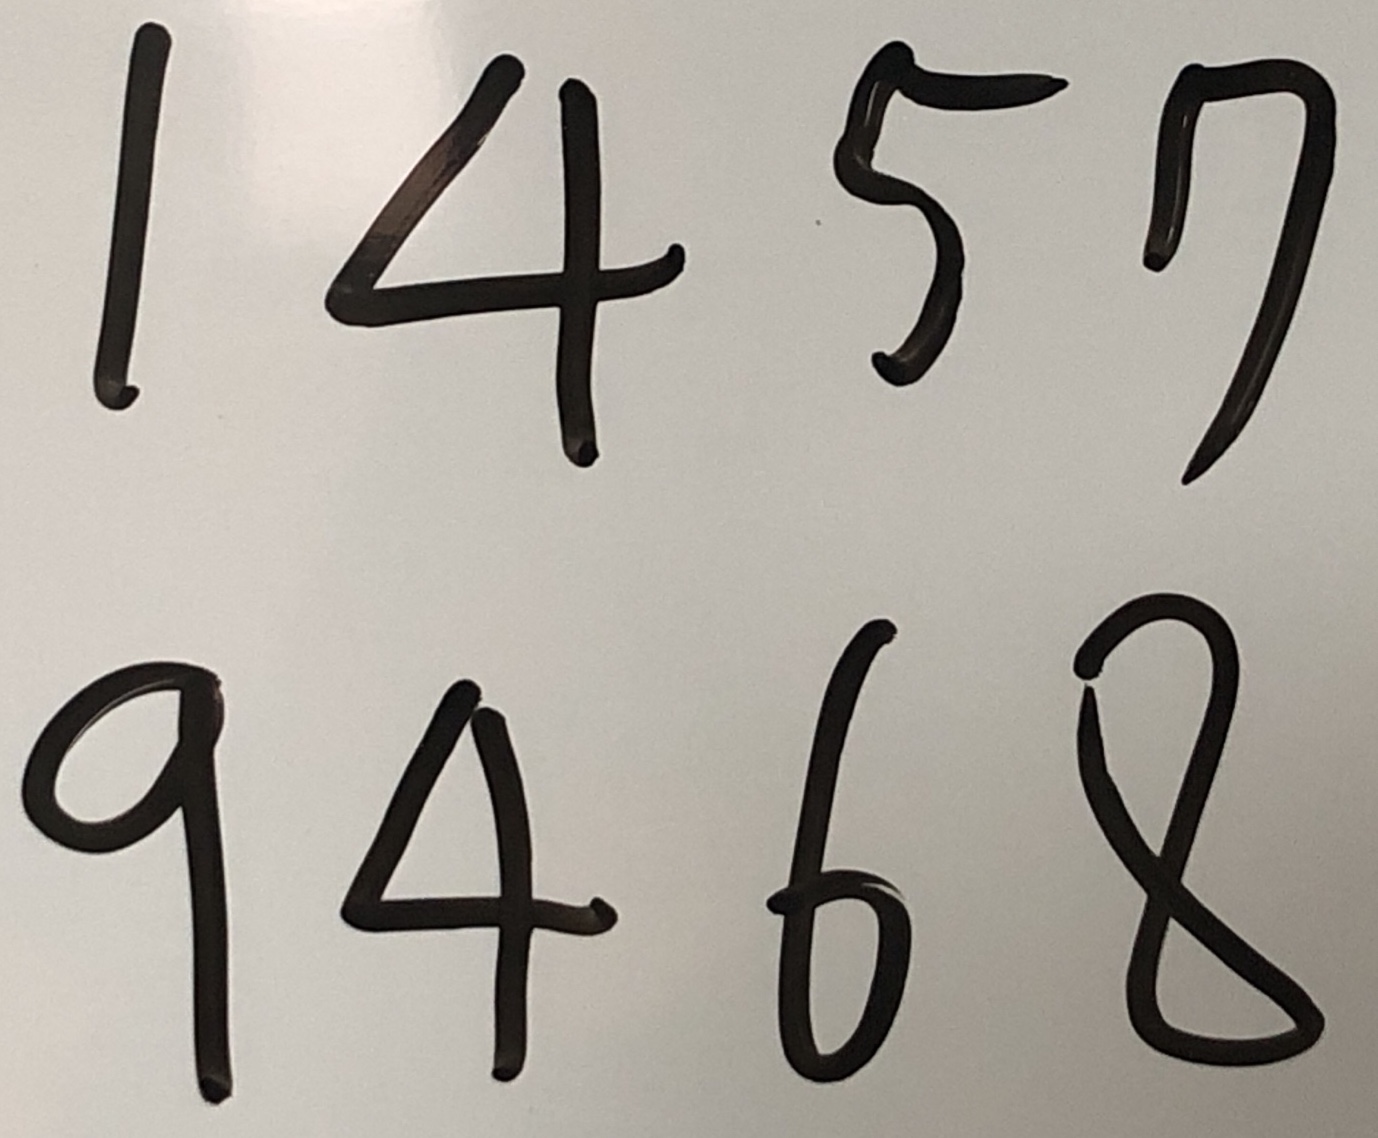 1 4 5 7
9 4 6 8